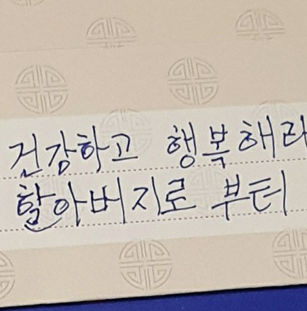 건강하고 행복해라
할아버지로 부터